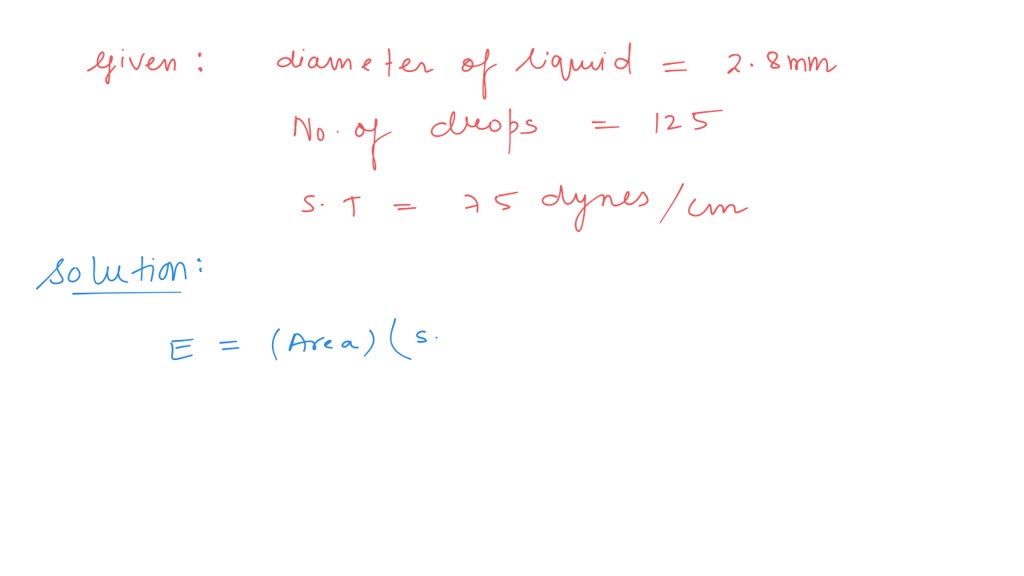 given : diameter of liquid = 2.8mm
No. of drops = 125
S.T = 75 dynes/cm
Solution:
E = (Area) (s.